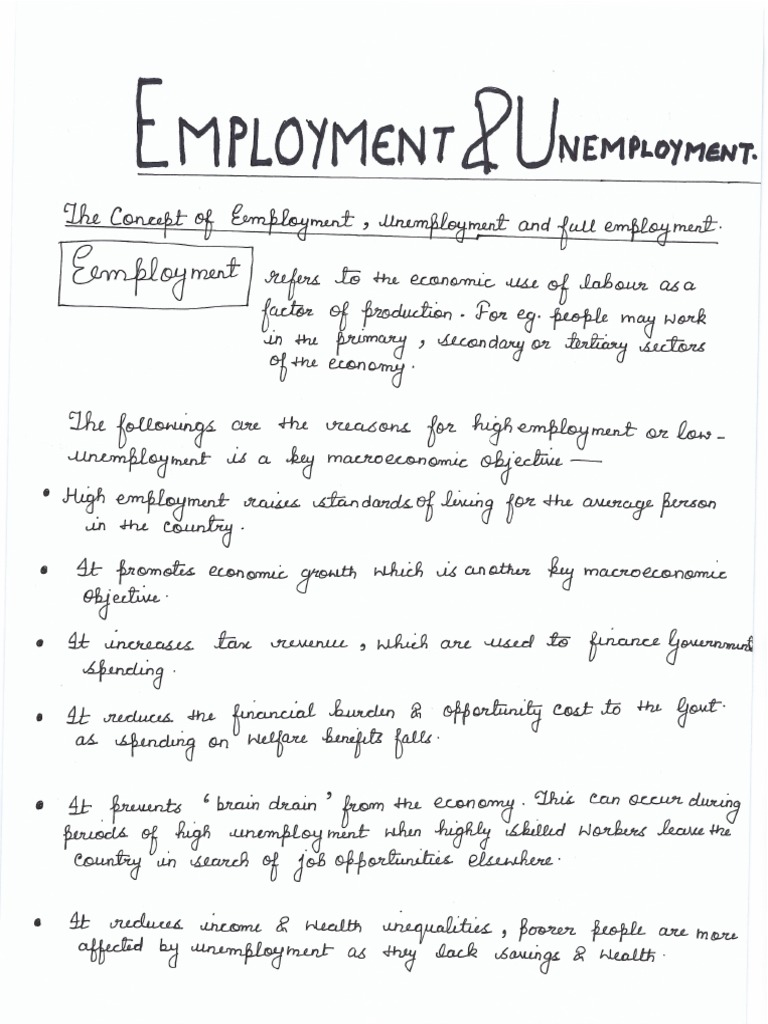 EMPLOYMENT & UNEMPLOYMENT.
The Concept of Eemployment, unemployment and full employment.
Eemployment refers to the economic use of labour as a
factor of production. For eg. people may work
in the primary, secondary or tertiary sectors
of the economy.
The followings are the reasons for high employment or low-
unemployment is a key macroeconomic objective —
• High employment raises standards of living for the average person
in the country.
• It promotes economic growth which is another key macroeconomic
objective.
• It increases tax revenue, which are used to finance Government
spending.
• It reduces the financial burden & opportunity cost to the Govt.
as spending on welfare benefits falls.
• It prevents ‘brain drain’ from the economy. This can occur during
periods of high unemployment when highly skilled workers leave the
country in search of job opportunities elsewhere.
• It reduces income & wealth inequalities, poorer people are more
affected by unemployment as they lack savings & wealth.